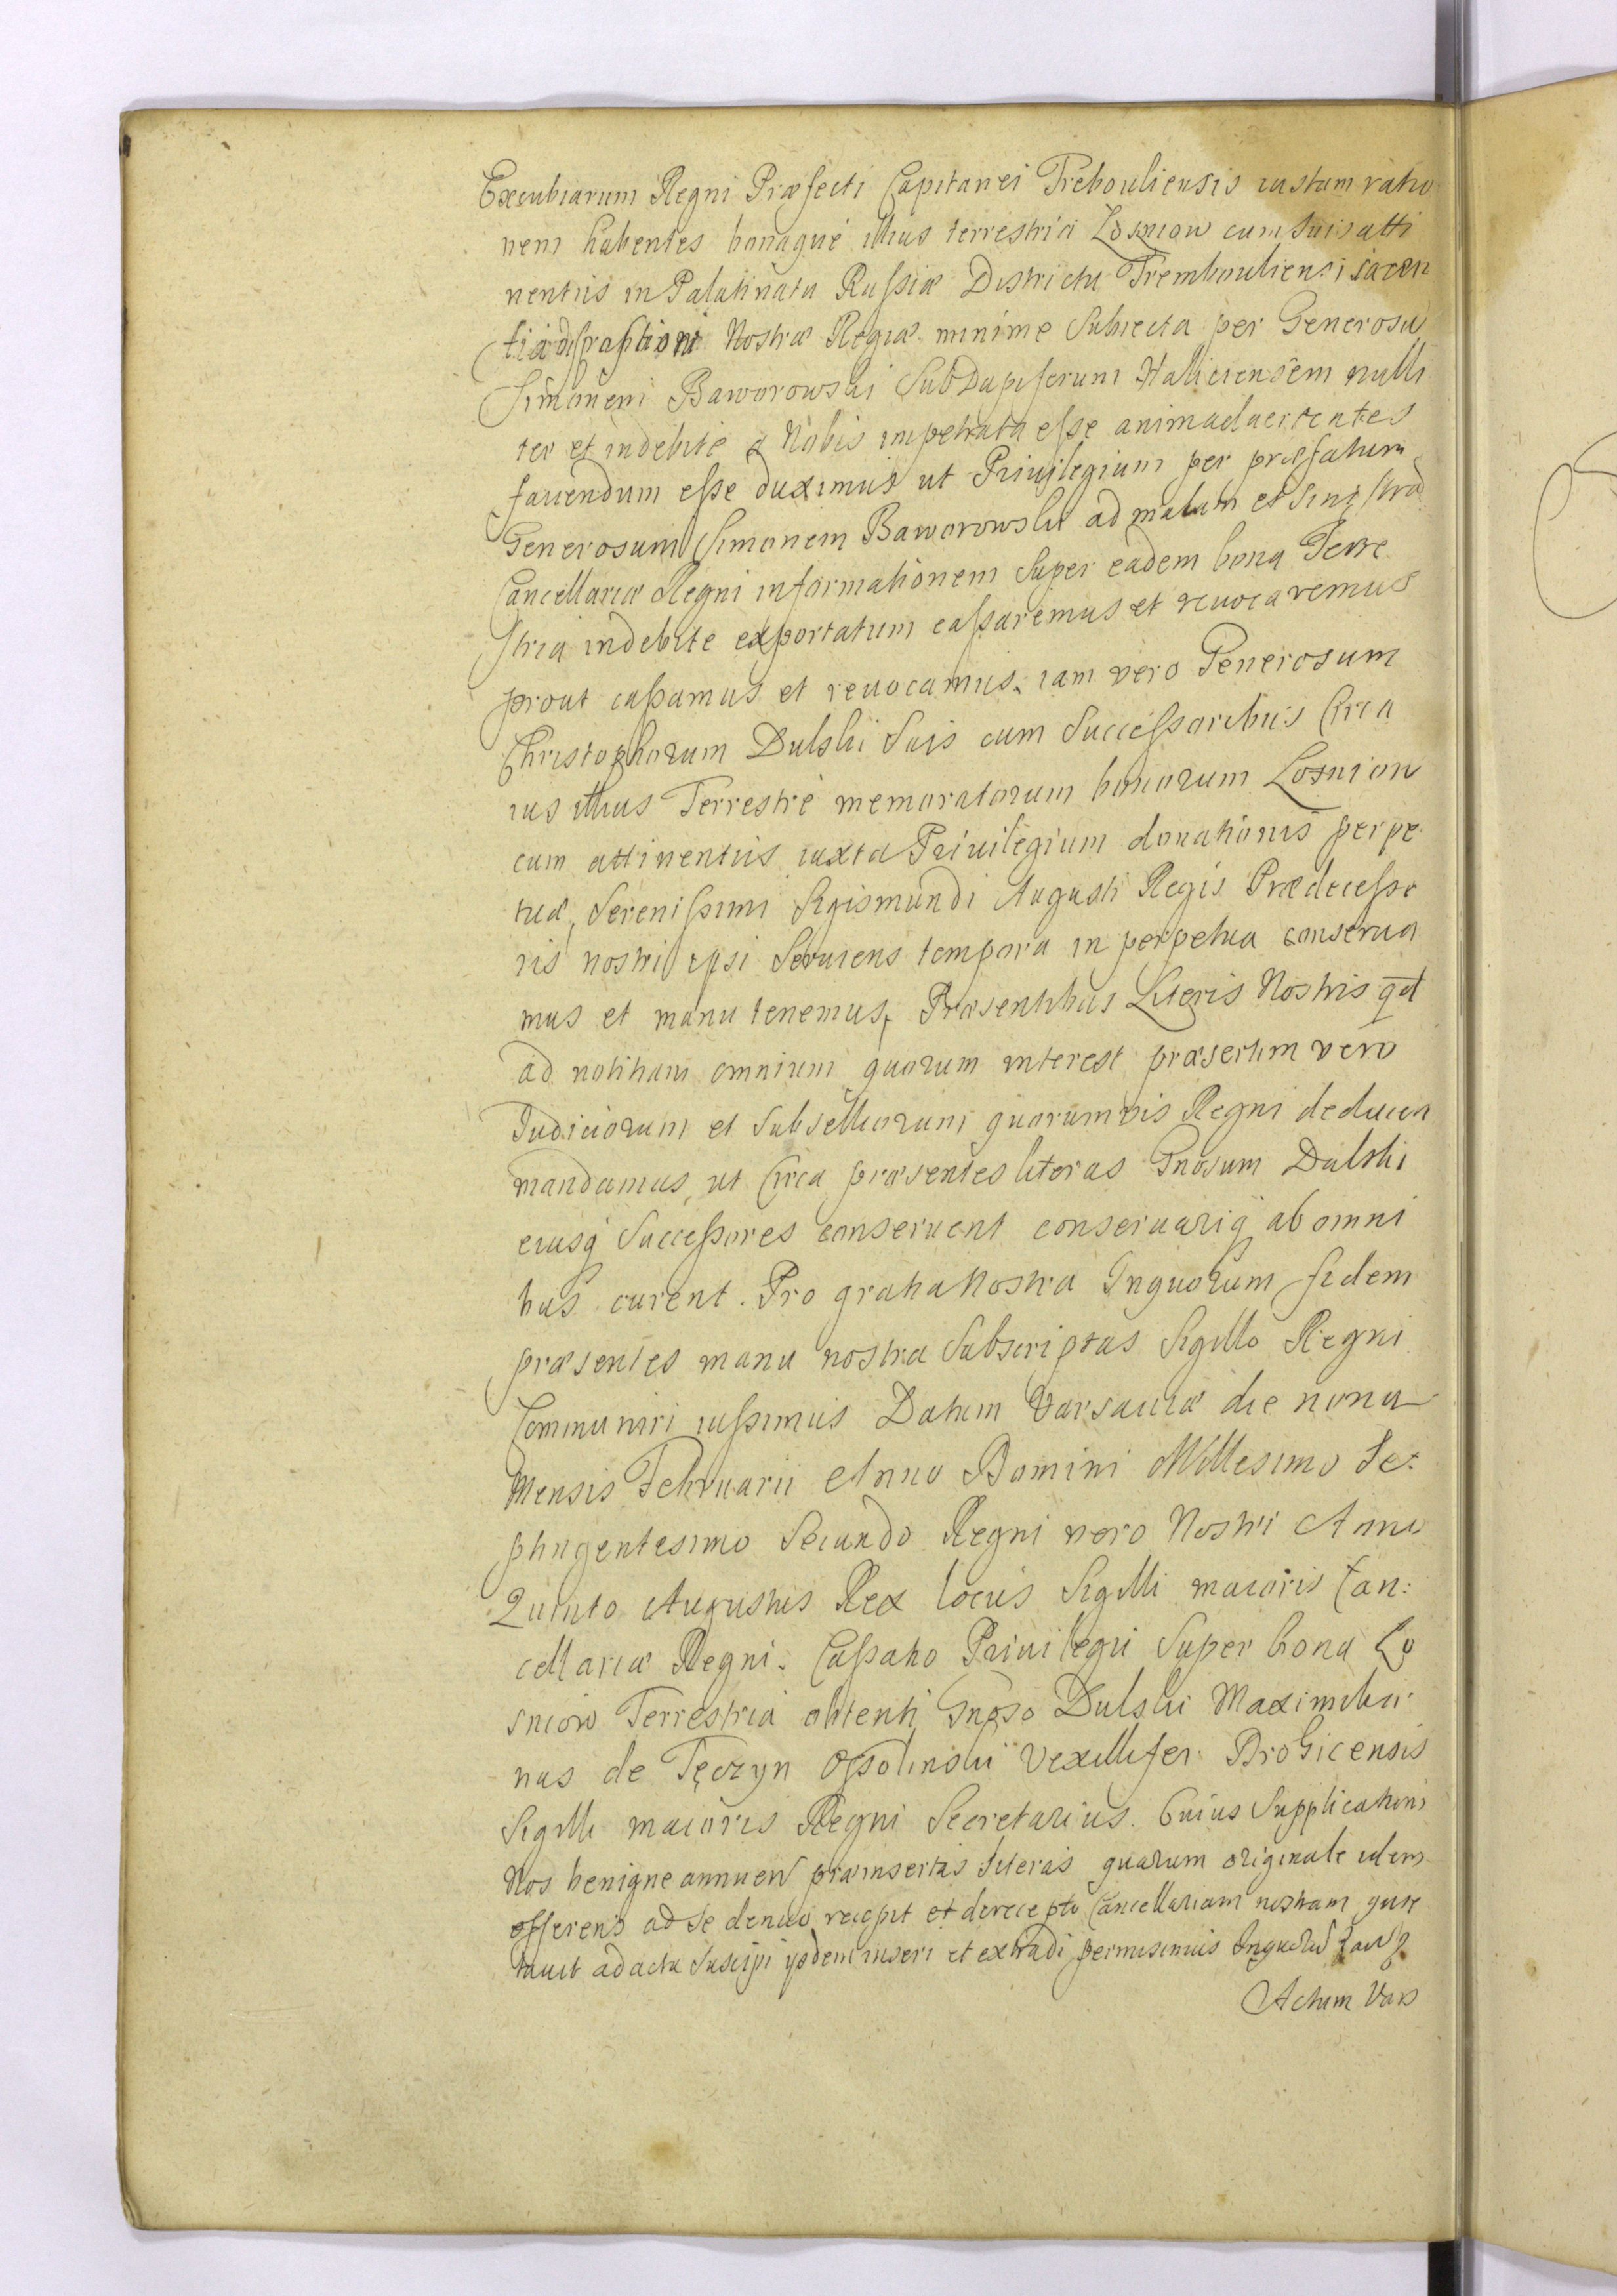 Excubiarum Regni Præfecti Capitanei Trebouliensis iustam ratio
nem habentes bonaque illius terrestria Losniow cum suis atti
nentiis in Palatinatu Russiæ Districtu Trembouliensi iacen
tia dispositioni Nostræ Regiæ minime Subiecta per Generosũ
Simonem Baworowski SubDapiferum Haliciensem nulli
ter et indebite a Nobis impetrata esse animaduertentes
fauendum esse duximus ut Priuilegium per præfatum
Generosum Simonem Baworowski ad malam et Sinistrã
Cancellariæ Regni informationem Super eadem bona Terre
Stria indebite exportatum cassaremus et reuocaremus
prout cassamus et reuocamus. iam vero Generosum
Christophorum Dulski Suis cum Successoribus Circa
ius illius Terrestre memoratorum bonorum Losniow
cum attinentiis iuxta Priuilegium donationis perpe
tuæ, Serenissimi Sigismundi Augusti Regis Prædecesso
ris nostri ipsi Seruiens tempora in perpetua conserua
mus et manu tenemus, Præsentibus Literis Nostris qd
ad notitiam omnium quorum interest præsertim vero
Iudiciorum et Subselliorum quorumuis Regni deducen
mandamus, ut Circa præsentes literas Gnosum Dulski
eiusq Successores conseruent conseruariq ab omni
bus curent. Pro gratia Nostra Inquorum fidem
præsentes manu nostra Subscriptas Sigillo Regni
Communiri iussimus Datum Varsauiæ die nona
Mensis Februarii Anno Domini Millesimo Se:
ptingentesimo Secundo Regni vero Nostri Anno
Quinto Augustus Rex locus Sigilli maioris Can:
cellariæ Regni. Cassatio Priuilegii Super bona Lo
sniow Terrestria obtenti Gnoso Dulski Maximilia
nus de Tęczyn Ossolinski Vexillifer Drohicensis
Sigilli maioris Regni Secretarius. Cuius Supplicationi
Nos benigne annuen præinsertas literas quarum originale idem
offerens ad Se denuo recepit et de recepto Cancellariam nostram quie
tauit ad acta Suscipi ysdem inseri et extradi permisimus Inquorũ
Actum Vars